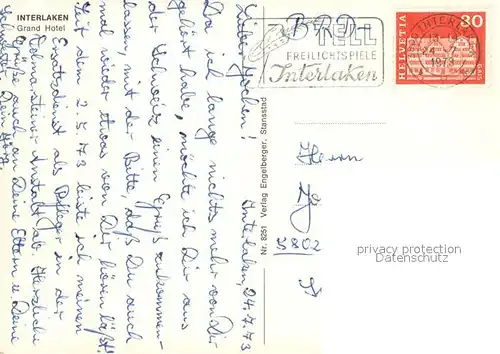 INTERLAKEN
Grand Hotel
Interlaken, 24.7.73
Lieber Jochen!
Da ich lange nichts mehr von Dir
gehört habe, möchte ich Dir aus
der Schweiz einen Gruß zukommen
lassen, mit der Bitte, daß Du auch
mal wieder etwas von Dir hören läßt!
Seit dem 2.5.73 leiste ich meinen
Ersatzdienst als Pfleger in der
Anstalt ab. Herzliche
Grüße auch an Deine Eltern u. Deine
Dein
Nr. 8251 Verlag Engelberger, Stansstad
BRD
TELL
FREILICHTSPIELE
Interlaken
HELVETIA
30
INTERLAKEN
24.7.
1973
Herrn
privacy protection
by oldthing.de